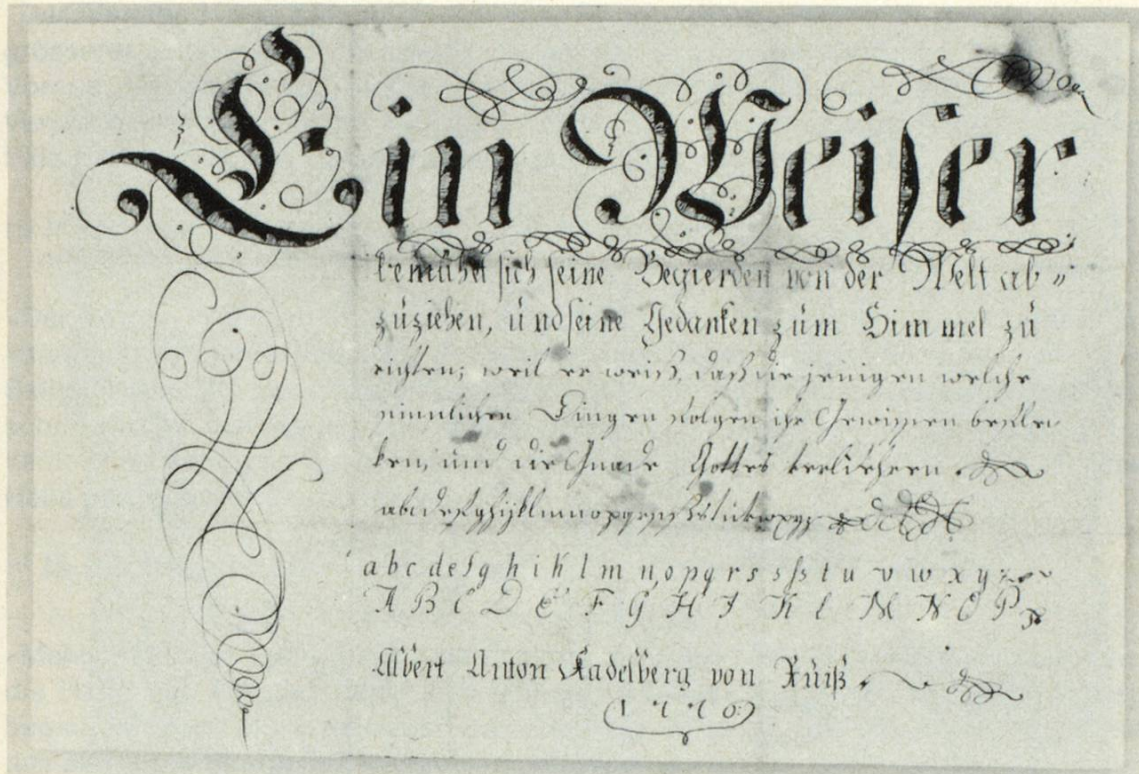 Ein Weiser
bemühet sich seine Begierden von der Welt ab⸗
zuziehen, und seine Gedanken zum Himmel zu
richten; weil er weiß, daß die jenigen welche
sinnlichen Dingen folgen ihr Gewissen beflec
ken, und die Gnade Gottes verliehern
a b c d e f g h i k l m n o p q r s s ß t u v w x y z
A B C D E F G H I K L M N O P
Albert Anton Kadelberg von